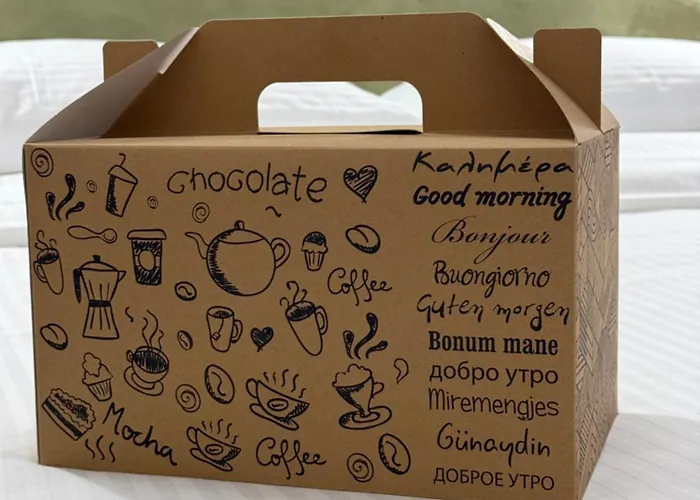 chocolate
Coffee
Mocha
Coffee
Καλημέρα
Good morning
Bonjour
Buongiorno
Guten morgen
Bonum mane
добро утро
Miremengjes
Günaydin
ДОБРОЕ УТРО